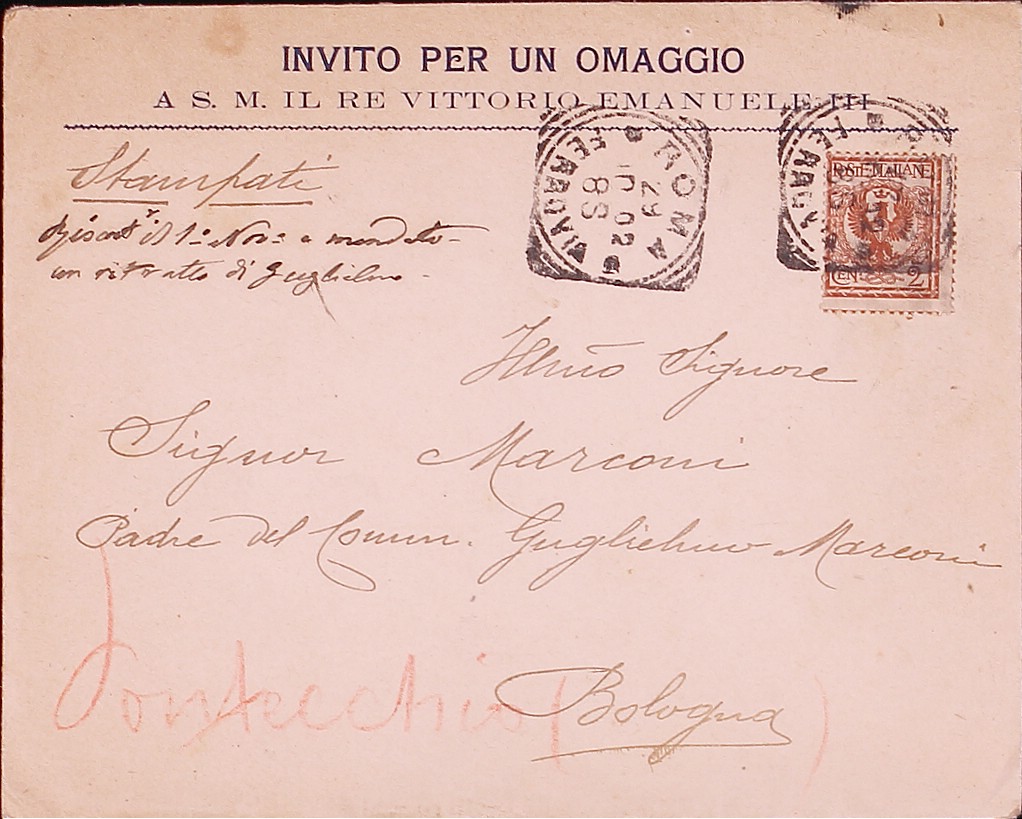 INVITO PER UN OMAGGIO
A S. M. IL RE VITTORIO EMANUELE III
Stampati
il 1º Nov e mandato
un ritratto di Guglielmo
ROMA
FERROVIA
29
10 02
8S
POSTE ITALIANE
CENT 2
Illmo Signore
Signor Marconi
Padre del Comm. Guglielmo Marconi
Pontecchio ( )
Bologna